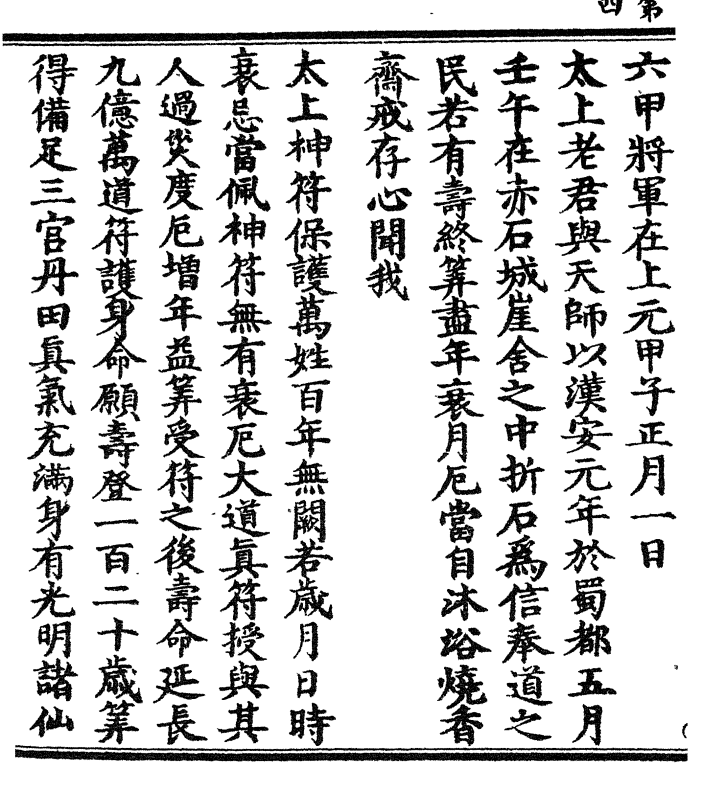 第四
六甲將軍在上元甲子正月一日
太上老君與天師以漢安元年於蜀都五月
壬午在赤石城崖舍之中折石爲信奉道之
民若有壽終筭盡年衰月厄當自沐浴燒香
齋戒存心聞我
太上神符保護萬姓百年無闕若歲月日時
衰忌當佩神符無有衰厄大道眞符授與其
人過災度厄增年益筭受符之後壽命延長
九億萬道符護身命願壽登一百二十歲筭
得備足三官丹田眞氣充滿身有光明諸仙